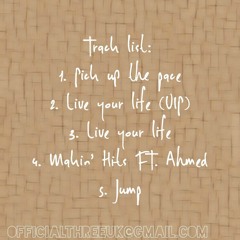 Track list:
1. Pick up the pace
2. Live your life (VIP)
3. Live your life
4. Makin' Hits Ft. Ahmed
5. Jump
OFFICIALTHREEUK@GMAIL.COM